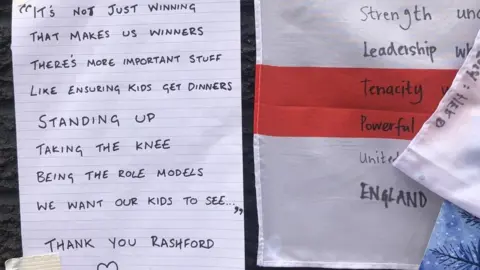 "IT'S NOT JUST WINNING
THAT MAKES US WINNERS
THERE'S MORE IMPORTANT STUFF
LIKE ENSURING KIDS GET DINNERS
STANDING UP
TAKING THE KNEE
BEING THE ROLE MODELS
WE WANT OUR KIDS TO SEE..."
THANK YOU RASHFORD
Strength
Leadership
Tenacity
Powerful
ENGLAND